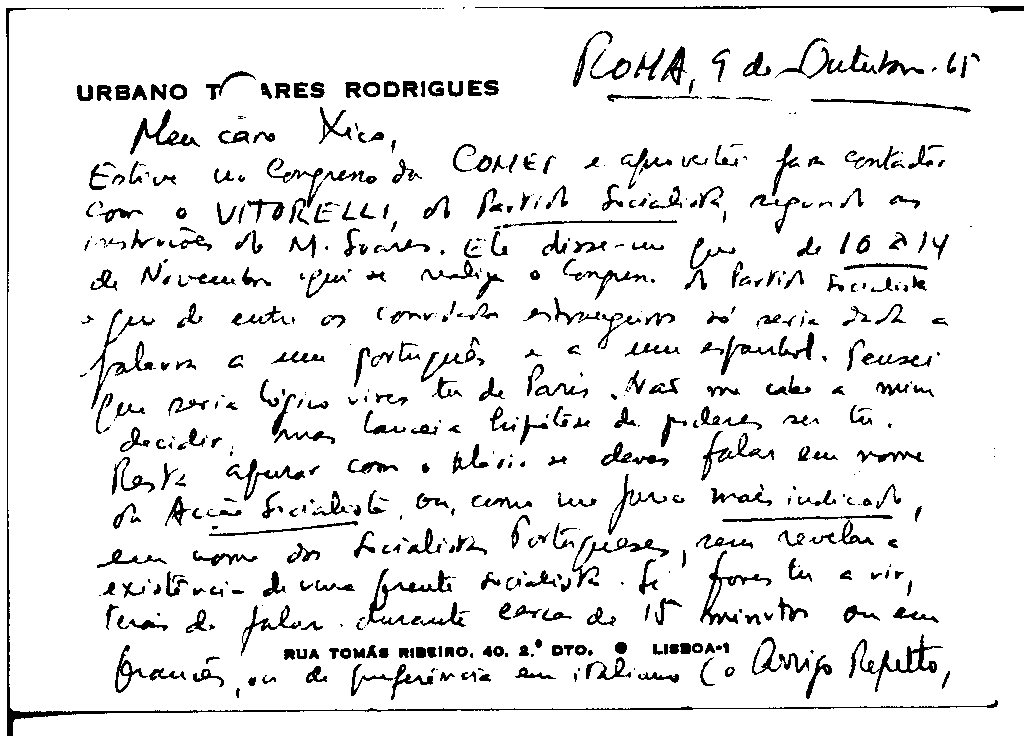 ROMA, 9 de Outubro. 65
URBANO T ARES RODRIGUES
Meu caro Xico,
Estive no Congresso da COMES e aproveitei para contactar
com o VITORELLI, do Partido Socialista, segundo as
instruções do M. Soares. Ele disse-me que de 10 a 14
de Novembro aqui se realiza o Congresso do Partido Socialista
e que de entre os convidados estrangeiros só seria dada a
palavra a um português e a um espanhol. Pensei
que seria lógico vires tu de Paris. Não me cabe a mim
decidir, mas lancei a hipótese de poderes ser tu.
Resta apurar com o Mário se deves falar em nome
da Acção Socialista, ou, como me parece mais indicado,
em nome dos Socialistas Portugueses, sem revelar a
existência de uma frente socialista. Se fores tu a vir,
terás de falar durante cerca de 15 minutos ou em
RUA TOMÁS RIBEIRO, 40, 2.º DTO. ● LISBOA-1
francês, ou de preferência em italiano (o Arrigo Repetto,